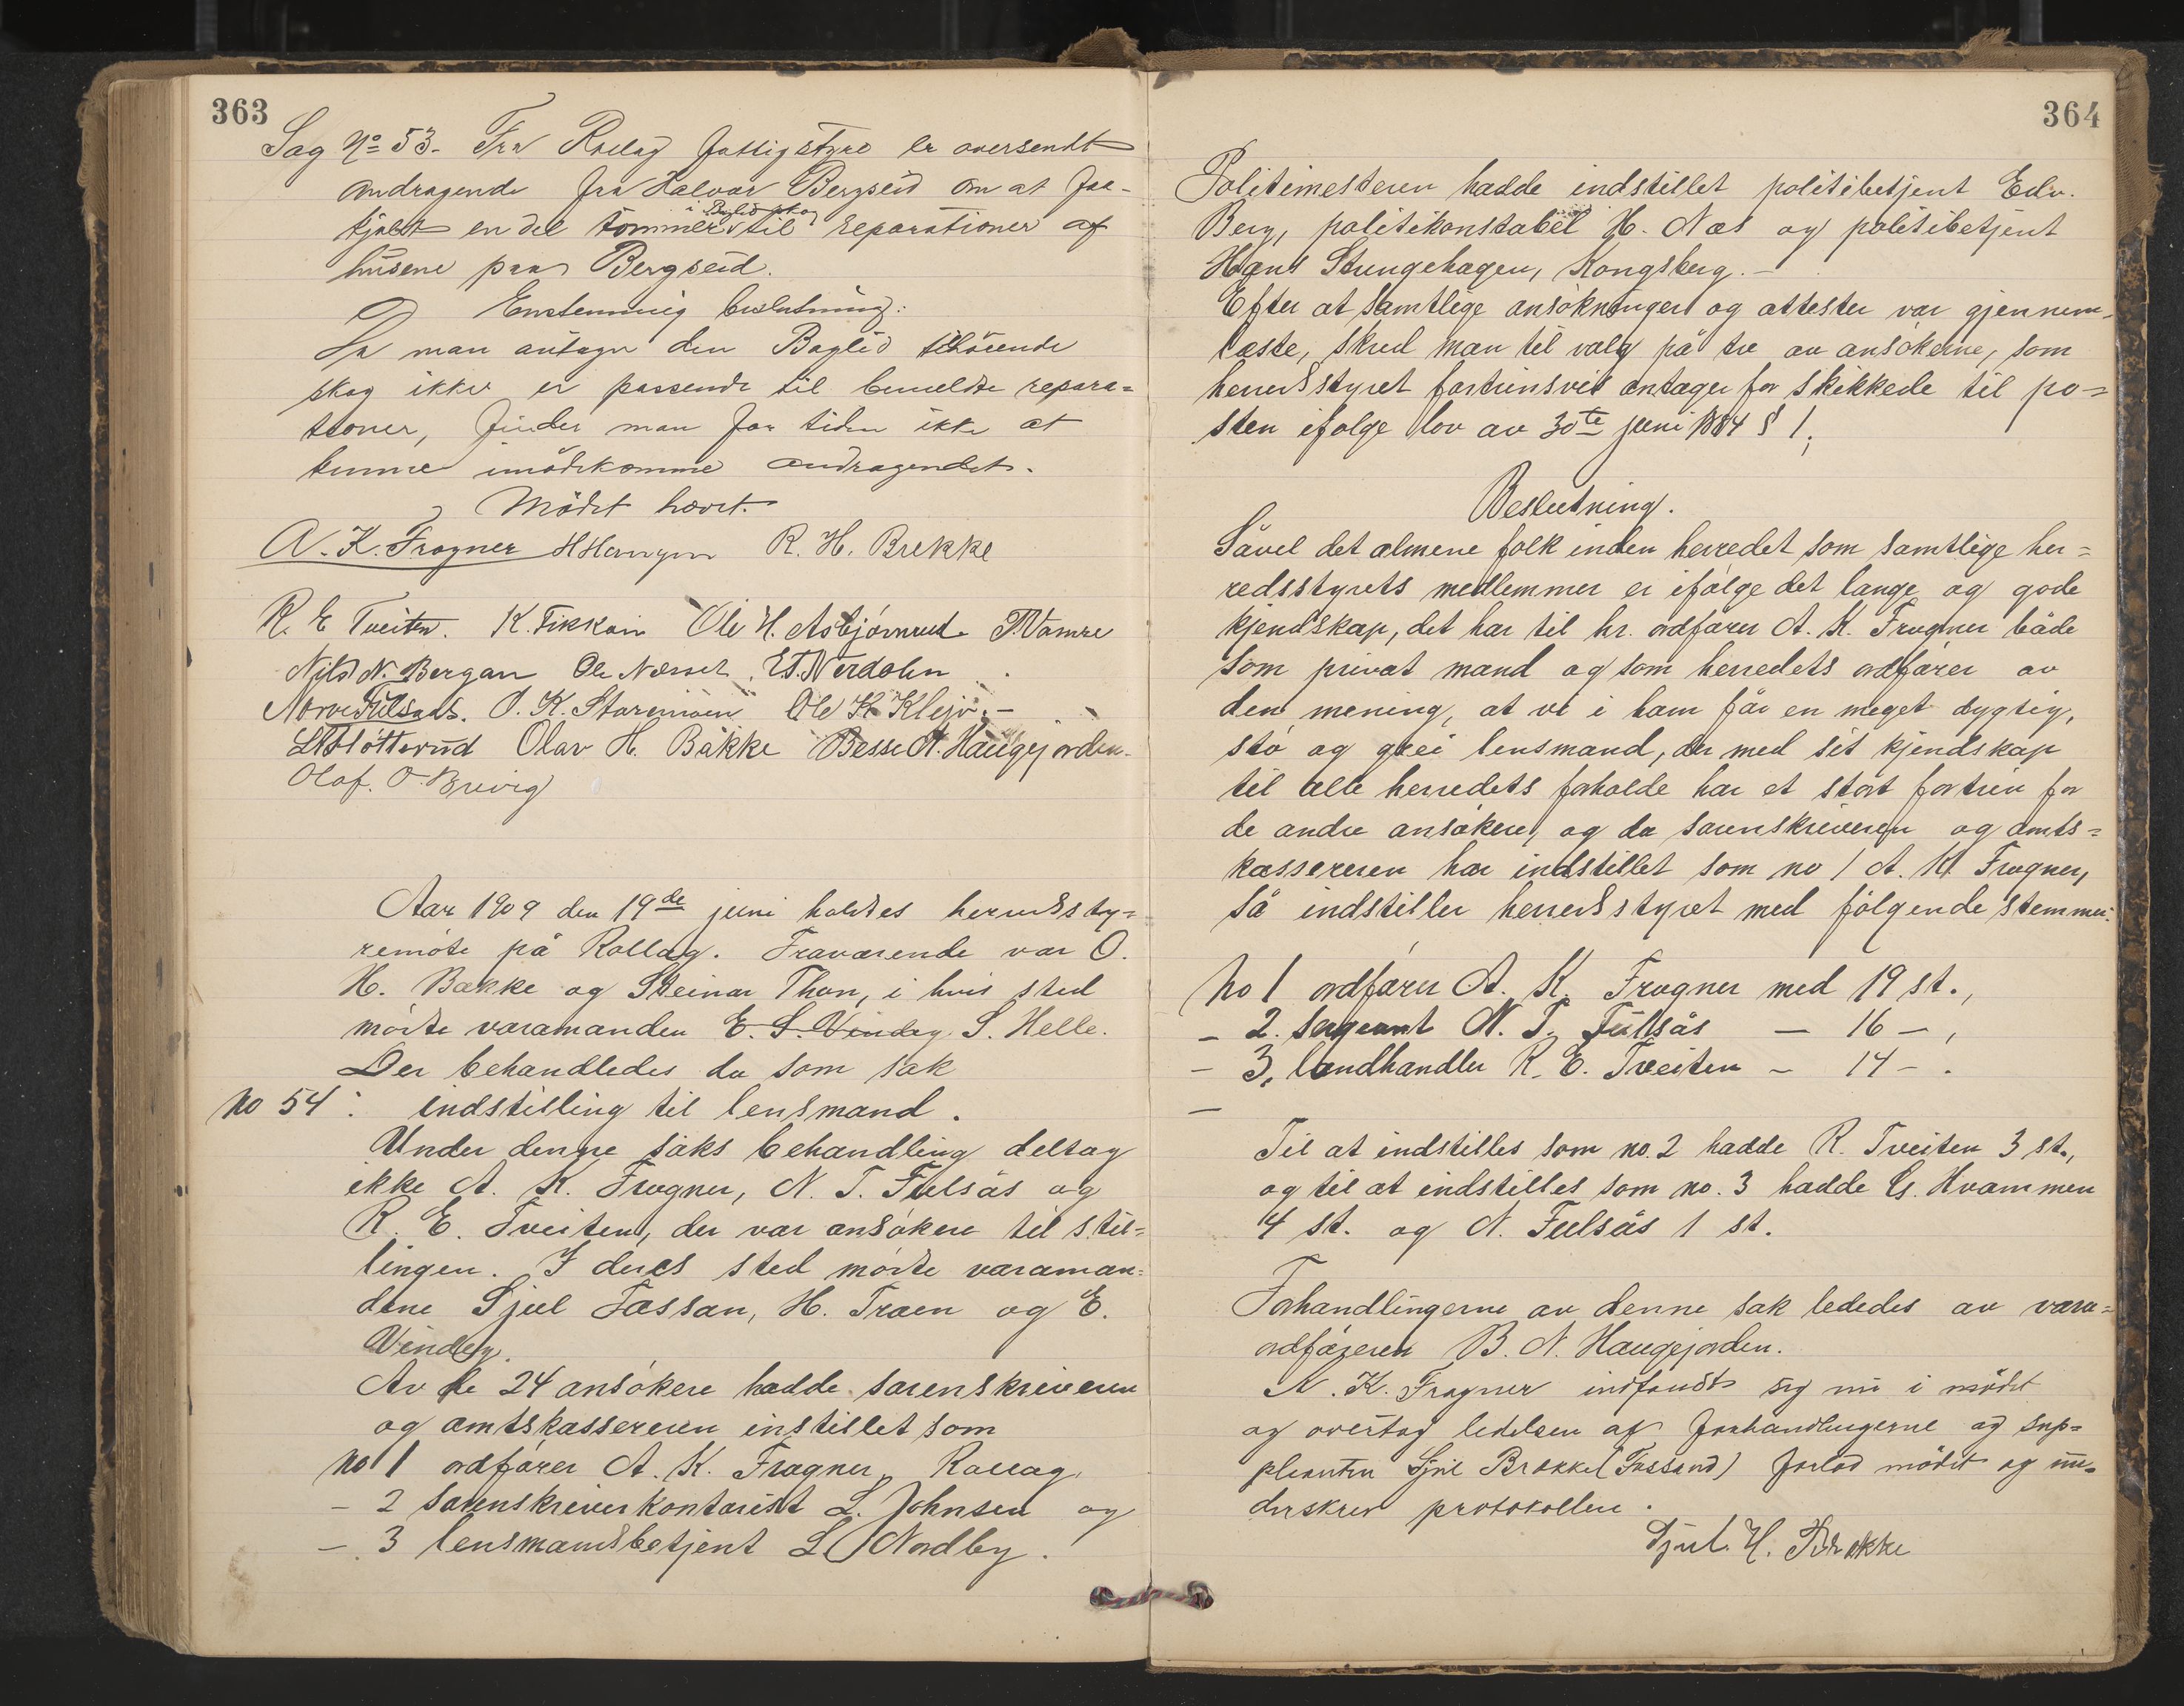 363
Sag No 53. Fra Rollag fattigstyre er oversendt
andragende fra Halvor Bergseid om at faa
i Baglid skog
kjøbt en del tømmer til reparationer af
husene paa Bergseid.
Enstemmig beslutning:
Da man antager den Baglid tilhørende
skog ikke er passende til bemeldte repara=
tioner, finder man for tiden ikke at
kunne imødekomme andragendet.
Mødet hævet.
A. K. Frogner R. H. Brekke
R. E Tveiten. K. Fikkan Ole H. Asbjørnrud T. Vamre
Nils N. Bergan Ole Næsset. E.T. Nerdalen
Narve Fulsaas. O. K. Staremoen Ole K. Klejv. -
Olav H. Bakke Besse N. Haugejorden.
Olaf. O. Brevig
Aar 1909 den 19de juni holdtes herredssty=
remøte på Rollag. Fraværende var O.
H. Bakke og Steinar Thon, i hvis sted
mødte varamanden E. S. Vindeg S. Helle.
Der behandledes da som sak
No 54: indstilling til lensmand.
Under denne saks behandling deltog
ikke A. K. Frogner, N. T. Fulsås og
R. E. Tveiten, der var ansøkere til stil=
lingen. I deres sted mødte varaman=
dene Gjul Fossan, H. Traen og E.
Vindeg.
Av de 24 ansøkere hadde sorenskriveren
og amtskassereren instillet som
no 1 ordfører A. K. Frogner, Rollag.
- 2 sorenskriverkontorist L. Johnsen og
- 3 lensmandsbetjent L. Nordby.
364
Politimesteren hadde indstillet politibetjent Edv.
Berg, politikonstabel H. Næs og politibetjent
Hans Stungehagen, Kongsberg. -
Efter at samtlige ansøkninger og attester var gjennem-
læste, skred man til valg på tre av ansøkerne, som
herredsstyret fortrinsvis antager for skikkede til po=
sten ifølge lov av 30te juni 1884 § 1;
Beslutning.
Såvel det almene folk inden herredet som samtlige her=
redsstyrets medlemmer er ifølge det lange og gode
kjendskap, det har til hr. ordfører A. K. Frogner både
som privat mand og som herredets ordfører av
den mening, at vi i ham får en meget dygtig,
stø og grei lensmand, der med sit kjendskap
til alle herredets forholde har et stort fortrin for
de andre ansøkere, og da sorenskriveren og amts=
kassereren har indstillet som no 1 A. K. Frogner,
så indstiller herredsstyret med følgende stemmer:
No 1 ordfører A. K. Frogner med 19 st.,
- 2. sergeant N. T. Fulsås - 16 -,
- 3. landhandler R. E. Tveiten - 14 - .
-
Til at indstilles som no. 2 hadde R. Tveiten 3 st.,
og til at indstilles som no. 3 hadde G. Hvammen
4 st. og N. Fulsås 1 st.
Forhandlingerne av denne sak lededes av vara=
ordføreren B. N. Haugejorden.
A. K. Frogner indfandt sig nu i mødet
og overtog ledelsen af forhandlingerne og sup=
pleanten Gjul Brekke (Fossand) forlod mødet og un=
derskrev protokollen.
Gjul. H. Brekke